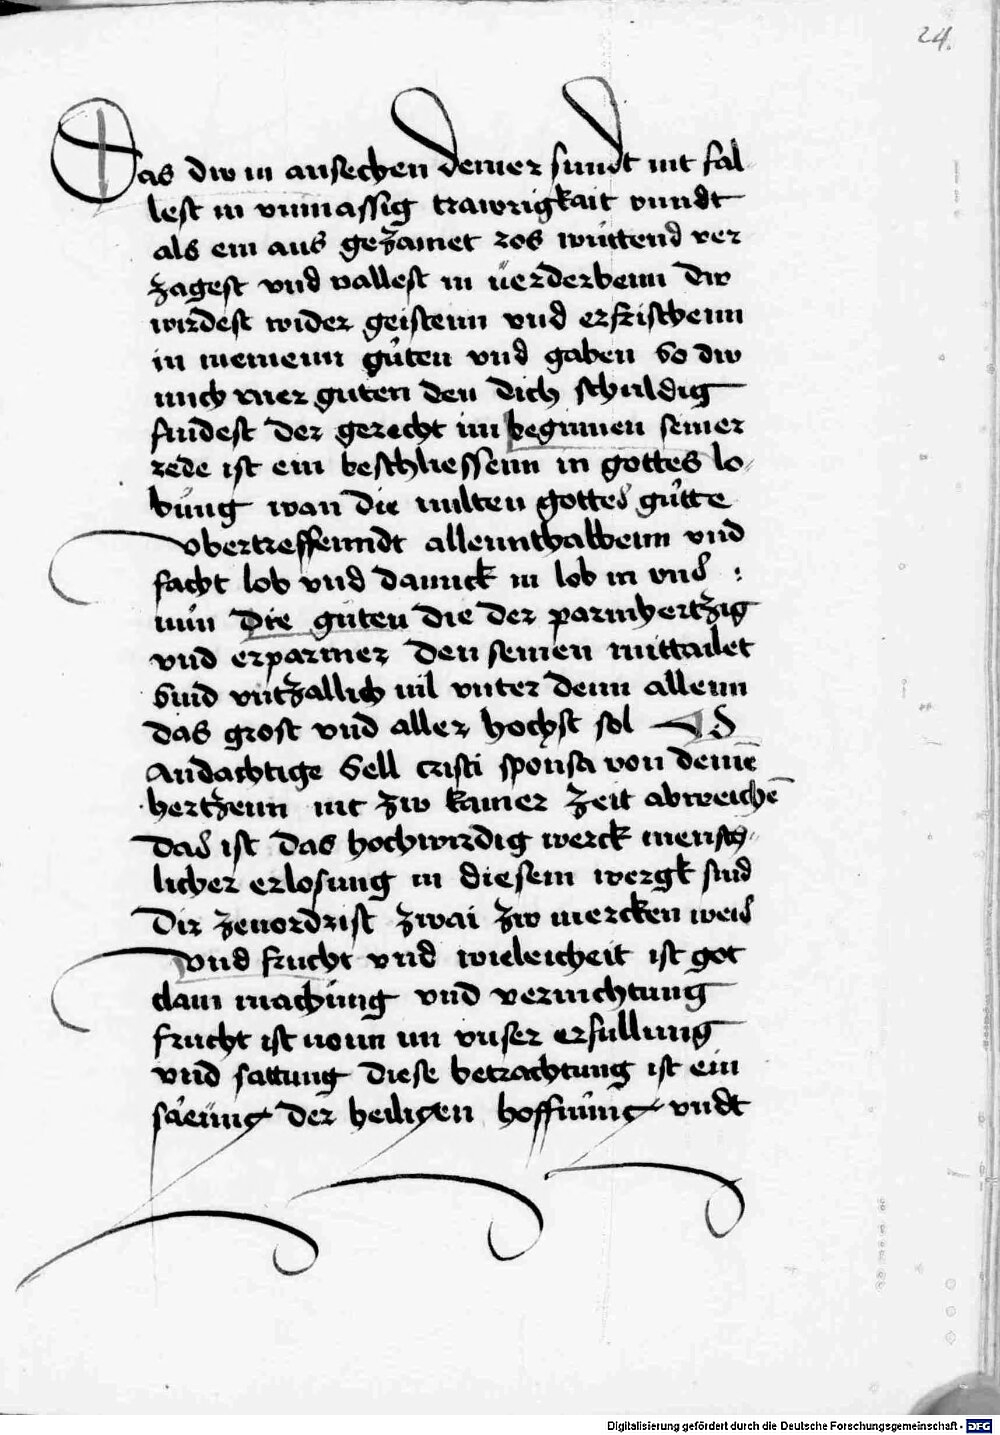 24.
Das dw in ansechen deiner sundt nit fal
lest in vnmassig trawrigkait vnndt
als ein aus gezamet ros wuttend ver
zagest vnd vallest in verderbenn dw
wirdest wider geistenn vnd erfrischenn
in meinenn guten vnd gaben So dw
mich mer guten den dich schuldig
findest der gerecht im beginnen seiner
rede ist ein beschliessenn in gottes lo-
bung wan die milten gottes gutte
vbertreffenndt allennthalbenn vnd
facht lob vnd dannck in lob in vns :
nun die guten die der parmhertzig
vnd erparmer den seinen mittailet
Sind vntzallich vil vnter denn allenn
das grost vnd aller hochst sol
Andachtige Sell cristi sponsa von deinē
hertzenn nit zw kainer zeit abweichē
das ist das hochwirdig werck mensch-
licher erlosung in diesem wergk sind
Dir zeuordrist zwai zw mercken weis
vnd frucht vnd weis ist got
dam machung vnd vernichtung
frucht ist vonn im vnser erfullung
vnd sattung diese betrachtung ist ein
säeung der heiligen hoffnung vndt
Digitalisierung gefördert durch die Deutsche Forschungsgemeinschaft - DFG